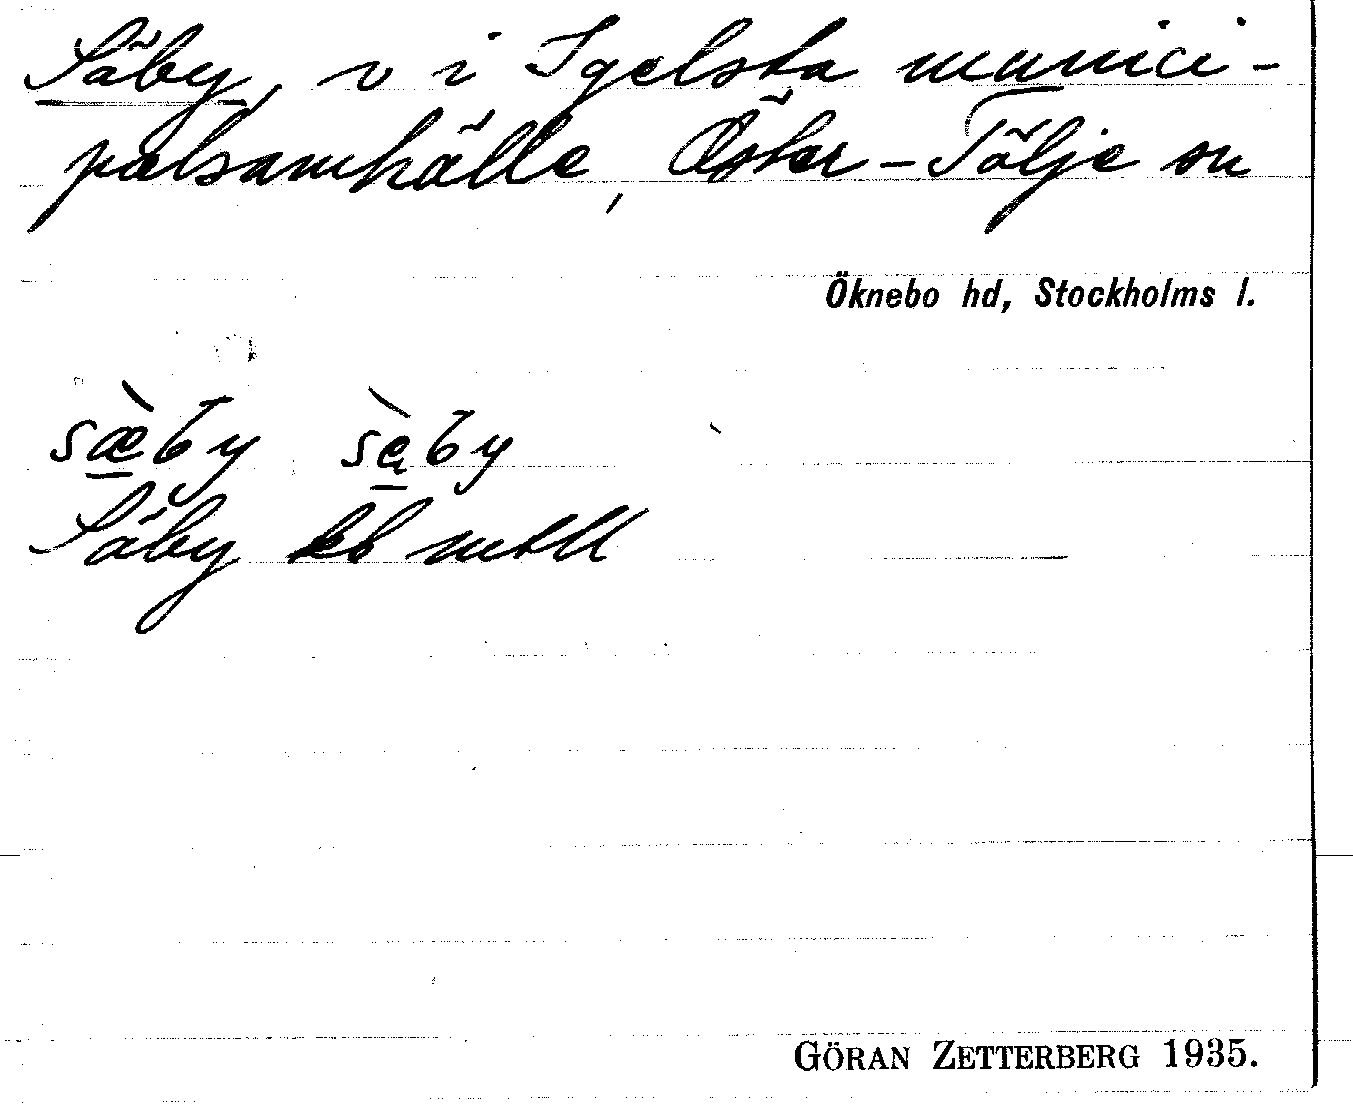 Säby, v i Igelsta munici-
palsamhälle, Öster-Tälje sn
Öknebo hd, Stockholms l.
sæ̀by sę̀by
Säby kb mtll
GÖRAN ZETTERBERG 1935.